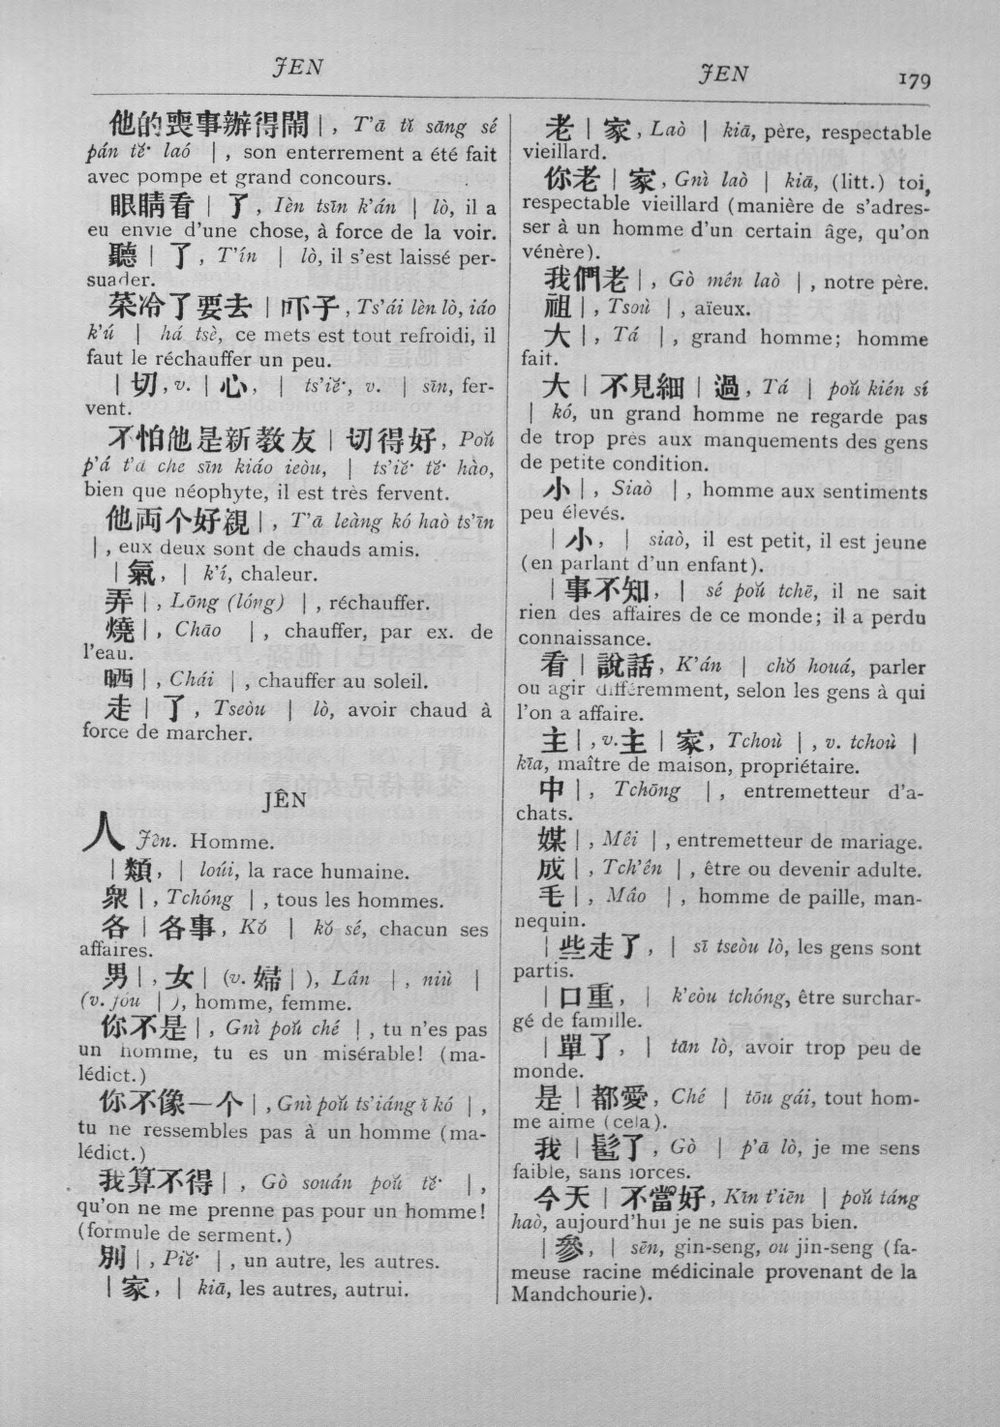 JEN
JEN
179
他的喪事辦得鬧 | , T'ā tǐ sāng sé
pán tě· laó | , son enterrement a été fait
avec pompe et grand concours.
眼睛看 | 了, Ièn tsīn k'án | lò, il a
eu envie d'une chose, à force de la voir.
聽 | 了, T'ín | lò, il s'est laissé per-
suader.
菜冷了要去 | 吓子, Ts'ái lèn lò, iáo
k'ú | há tsè, ce mets est tout refroidi, il
faut le réchauffer un peu.
| 切, v. | 心, | ts'iě·, v. | sīn, fer-
vent.
不怕他是新教友 | 切得好, Poǔ
p'á t'ā che sīn kiáo ieòu, | ts'iě· tě· hào,
bien que néophyte, il est très fervent.
他両个好親 | , T'ā leàng kó haò ts'īn
| , eux deux sont de chauds amis.
| 氣, | k'í, chaleur.
弄 | , Lōng (lóng) | , réchauffer.
燒 | , Chāo | , chauffer, par ex. de
l'eau.
晒 | , Chái | , chauffer au soleil.
走 | 了, Tseòu | lò, avoir chaud à
force de marcher.
JÊN
人 Jên. Homme.
| 類, | loúi, la race humaine.
衆 | , Tchóng | , tous les hommes.
各 | 各事, Kǒ | kǒ sé, chacun ses
affaires.
男 | , 女 | (v. 婦 | ), Lân | , niù |
(v. foú | ), homme, femme.
你不是 | , Gnì poǔ ché | , tu n'es pas
un homme, tu es un misérable! (ma-
lédict.)
你不像一个 | , Gnì poǔ ts'iáng ǐ kó | ,
tu ne ressembles pas à un homme (ma-
lédict.)
我算不得 | , Gò souán poǔ tě· | ,
qu'on ne me prenne pas pour un homme!
(formule de serment.)
別 | , Piě· | , un autre, les autres.
| 家, | kiā, les autres, autrui.
老 | 家, Laò | kiā, père, respectable
vieillard.
你老 | 家, Gnì laò | kiā, (litt.) toi,
respectable vieillard (manière de s'adres-
ser à un homme d'un certain âge, qu'on
vénère).
我們老 | , Gò mên laò | , notre père.
祖 | , Tsoù | , aïeux.
大 | , Tá | , grand homme; homme
fait.
大 | 不見細 | 過, Tá | poǔ kién sí
| kó, un grand homme ne regarde pas
de trop près aux manquements des gens
de petite condition.
小 | , Siaò | , homme aux sentiments
peu élevés.
| 小, | siaò, il est petit, il est jeune
(en parlant d'un enfant).
| 事不知, | sé poǔ tchē, il ne sait
rien des affaires de ce monde; il a perdu
connaissance.
看 | 說話, K'án | chǒ houá, parler
ou agir différemment, selon les gens à qui
l'on a affaire.
主 | , v. 主 | 家, Tchoù | , v. tchoù |
kīa, maître de maison, propriétaire.
中 | , Tchōng | , entremetteur d'a-
chats.
媒 | , Mêi | , entremetteur de mariage.
成 | , Tch'ên | , être ou devenir adulte.
毛 | , Mâo | , homme de paille, man-
nequin.
| 些走了, | sī tseòu lò, les gens sont
partis.
| 口重, | k'eòu tchóng, être surchar-
gé de famille.
| 單了, | tān lò, avoir trop peu de
monde.
是 | 都愛, Ché | tōu gái, tout hom-
me aime (cela).
我 | 了, Gò | p'ā lò, je me sens
faible, sans forces.
今天 | 不當好, Kīn t'iēn | poǔ táng
haò, aujourd'hui je ne suis pas bien.
| 參, | sēn, gin-seng, ou jin-seng (fa-
meuse racine médicinale provenant de la
Mandchourie).